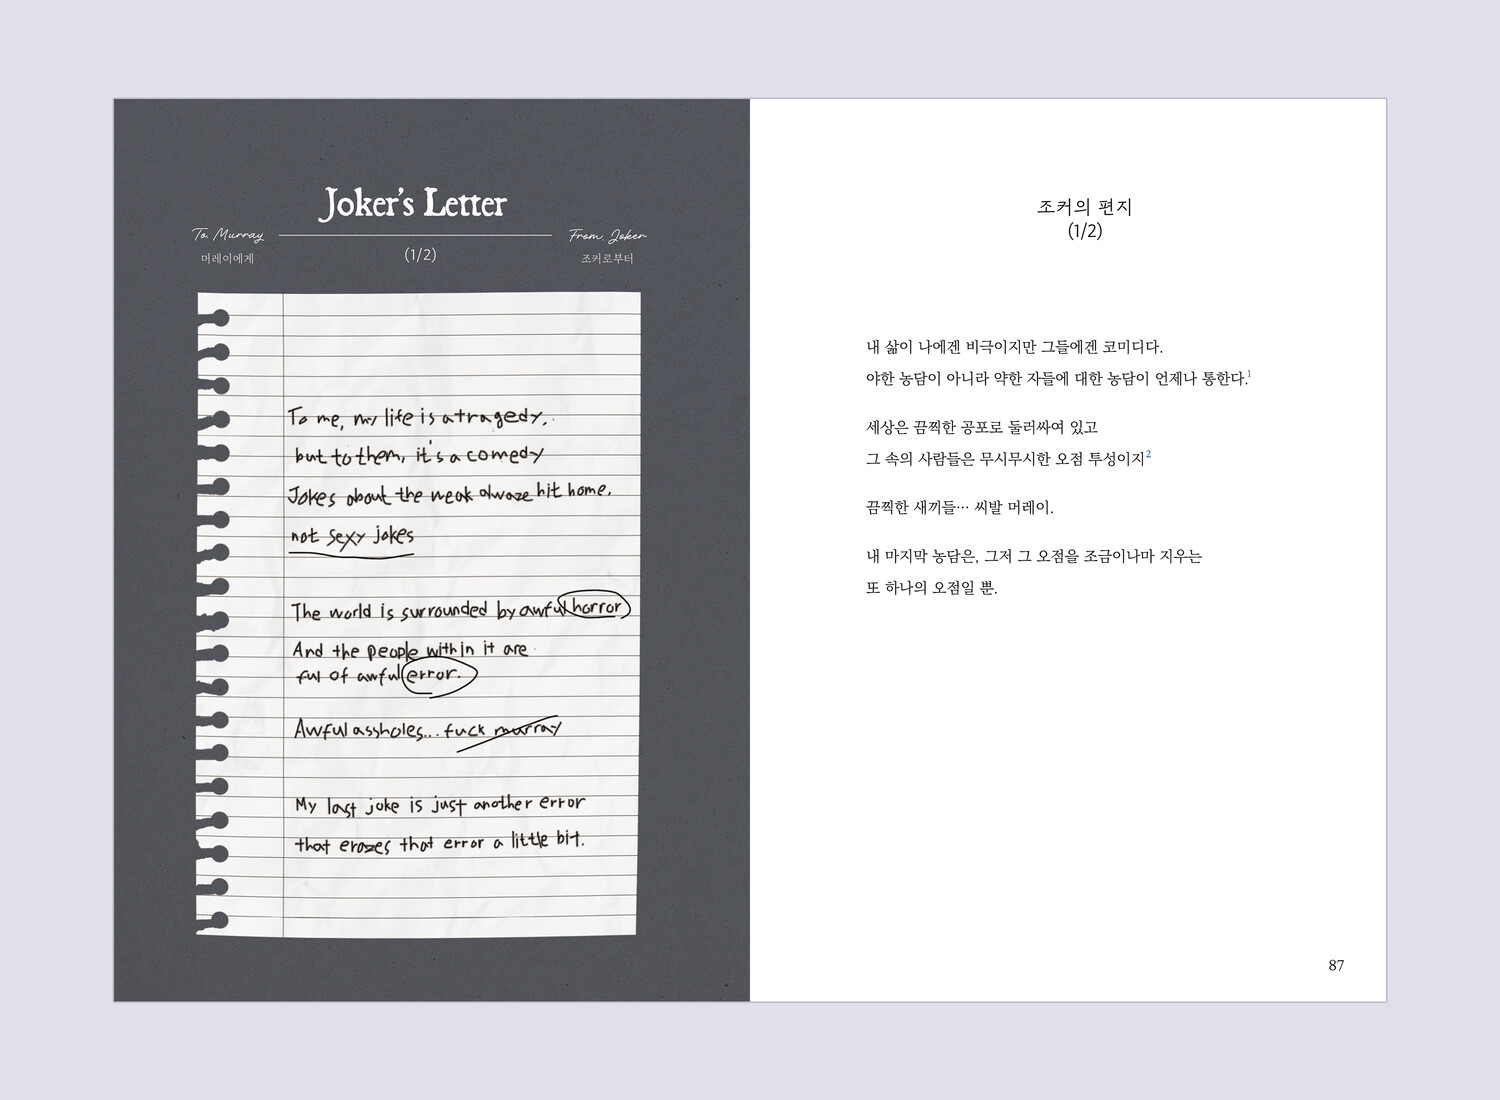 Joker's Letter
To. Murray
From. Joker
머레이에게
(1/2)
조커로부터
To me, my life is a tragedy,
but to them, it's a comedy
Jokes about the weak alwaze hit home.
not sexy jokes
The world is surrounded by awful horror
And the people within it are
ful of awful error.
Awful assholes... fuck murray
My last joke is just another error
that erazes that error a little bit.
조커의 편지
(1/2)
내 삶이 나에겐 비극이지만 그들에겐 코미디다.
야한 농담이 아니라 약한 자들에 대한 농담이 언제나 통한다.1
세상은 끔찍한 공포로 둘러싸여 있고
그 속의 사람들은 무시무시한 오점 투성이지2
끔찍한 새끼들… 씨발 머레이.
내 마지막 농담은, 그저 그 오점을 조금이나마 지우는
또 하나의 오점일 뿐.
87